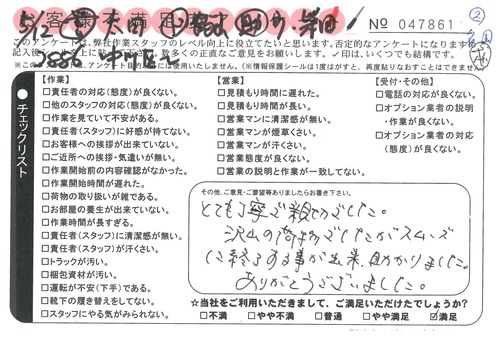 お客様満足度
No 047861
5/12
このアンケートは、弊社作業スタッフのレベル向上に役立てたいと思います。否定的なアンケートになります
数多くの正直なご意見をお願いします。✓印はいくつでも結構です。
(※情報保護シールは1度はがすと、再度貼りなおすことはできません)
チェックリスト
【作業】
□責任者の対応(態度)が良くない。
□他のスタッフの対応(態度)が良くない。
□作業を見ていて不安がある。
□責任者(スタッフ)に好感が持てない。
□お客様への挨拶が出来ていない。
□ご近所への挨拶・気遣いが無い。
□作業開始前の内容確認がなかった。
□作業開始時間が遅れた。
□荷物の取り扱いが雑である。
□お部屋の養生が出来ていない。
□作業時間が長すぎる。
□責任者(スタッフ)に清潔感が無い。
□責任者(スタッフ)が汗くさい。
□トラックが汚い。
□梱包資材が汚い。
□運転が不安(下手)である。
□靴下の履き替えをしてない。
□スタッフにやる気がみられない。
【営業】
□見積もり時間に遅れた。
□見積もり時間が長い。
□営業マンに清潔感が無い。
□営業マンが煙草くさい。
□営業マンが汗くさい。
□営業態度が良くない。
□営業の説明と作業が一致してない。
【受付・その他】
□電話の対応が良くない。
□オプション業者の説明・作業が良くない。
□オプション業者の対応(態度)が良くない。
その他、ご意見・ご要望等ありましたらお書き下さい。
とても丁寧で親切でした。
沢山の荷物でしたがスムーズ
に終了する事が出来、助かりました。
ありがとうございました。
☆当社をご利用いただきまして、ご満足いただけたでしょうか?
□不満 □やや不満 □普通 □やや満足 ☑満足